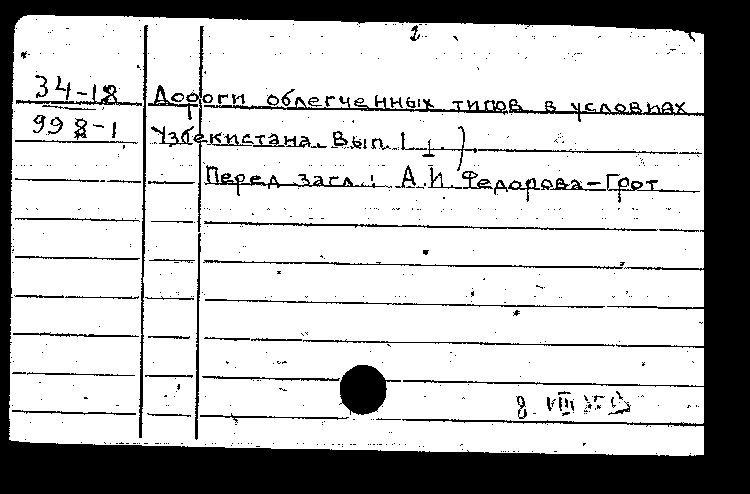 2
34-18 Дороги облегченных типов в условиях
998-1 Узбекистана. Вып. 1
Перед загл.: А.И. Федорова-Грот
8. VIII